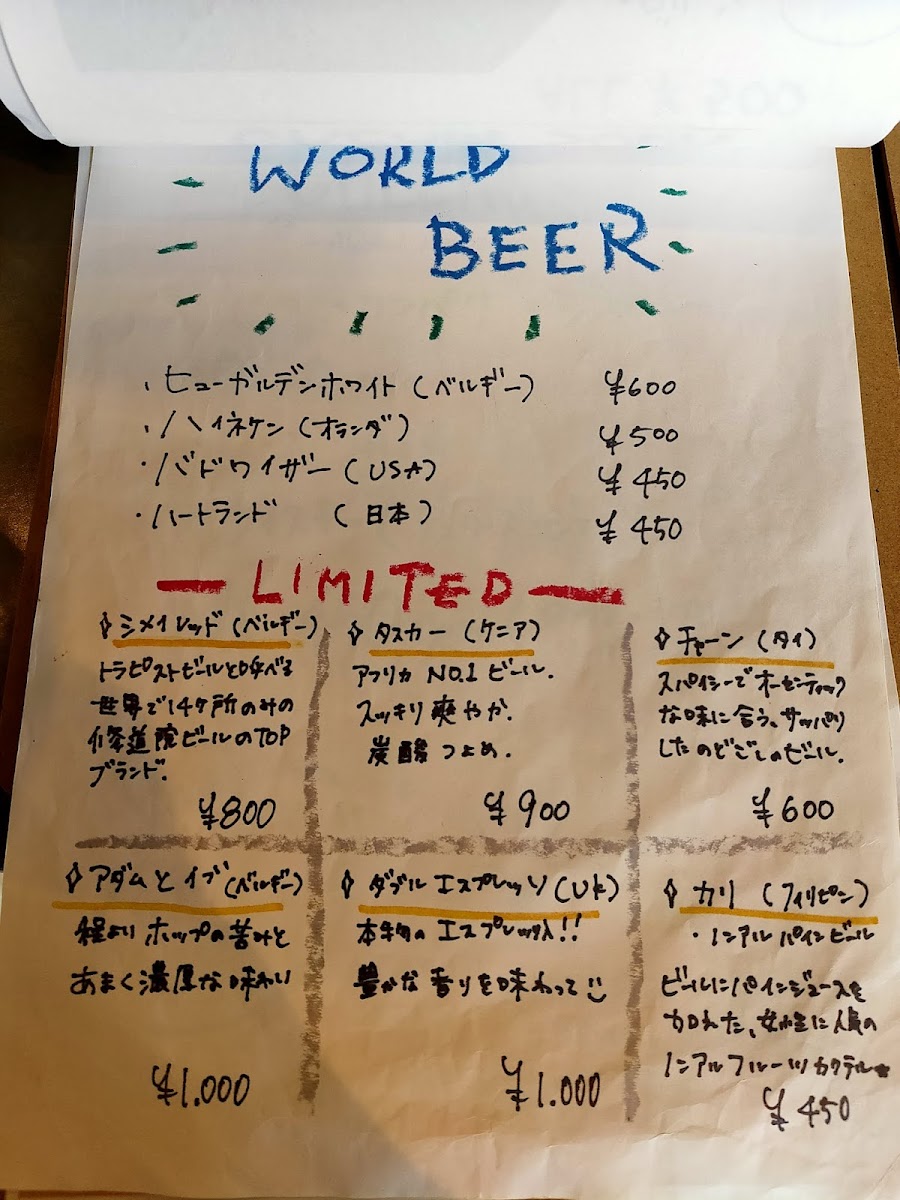 WORLD
BEER
・ヒューガルデンホワイト(ベルギー) ¥600
・ハイネケン(オランダ) ¥500
・バドワイザー(USA) ¥450
・ハートランド (日本) ¥450
ー LIMITED ー
◊ シメイレッド(ベルギー)
トラピストビールと呼べる
世界で14ヶ所のみの
修道院ビールのTOP
ブランド.
¥800
◊ タスカー(ケニア)
アフリカ NO.1 ビール.
スッキリ爽やか.
炭酸つよめ.
¥900
◊ チャーン(タイ)
スパイシーでオーセンティック
な味に合う、サッパリ
したのどごしのビール.
¥600
◊ アダムとイブ(ベルギー)
程よいホップの苦みと
あまく濃厚な味わい
¥1.000
◊ ダブルエスプレッソ(UK)
本物のエスプレッソ入!!
豊かな香りを味わって
¥1.000
◊ カリ(フィリピン)
・ノンアルパインビール
ビールにパインジュースを
加えた、女性に人気の
ノンアルフルーツカクテル★
¥450